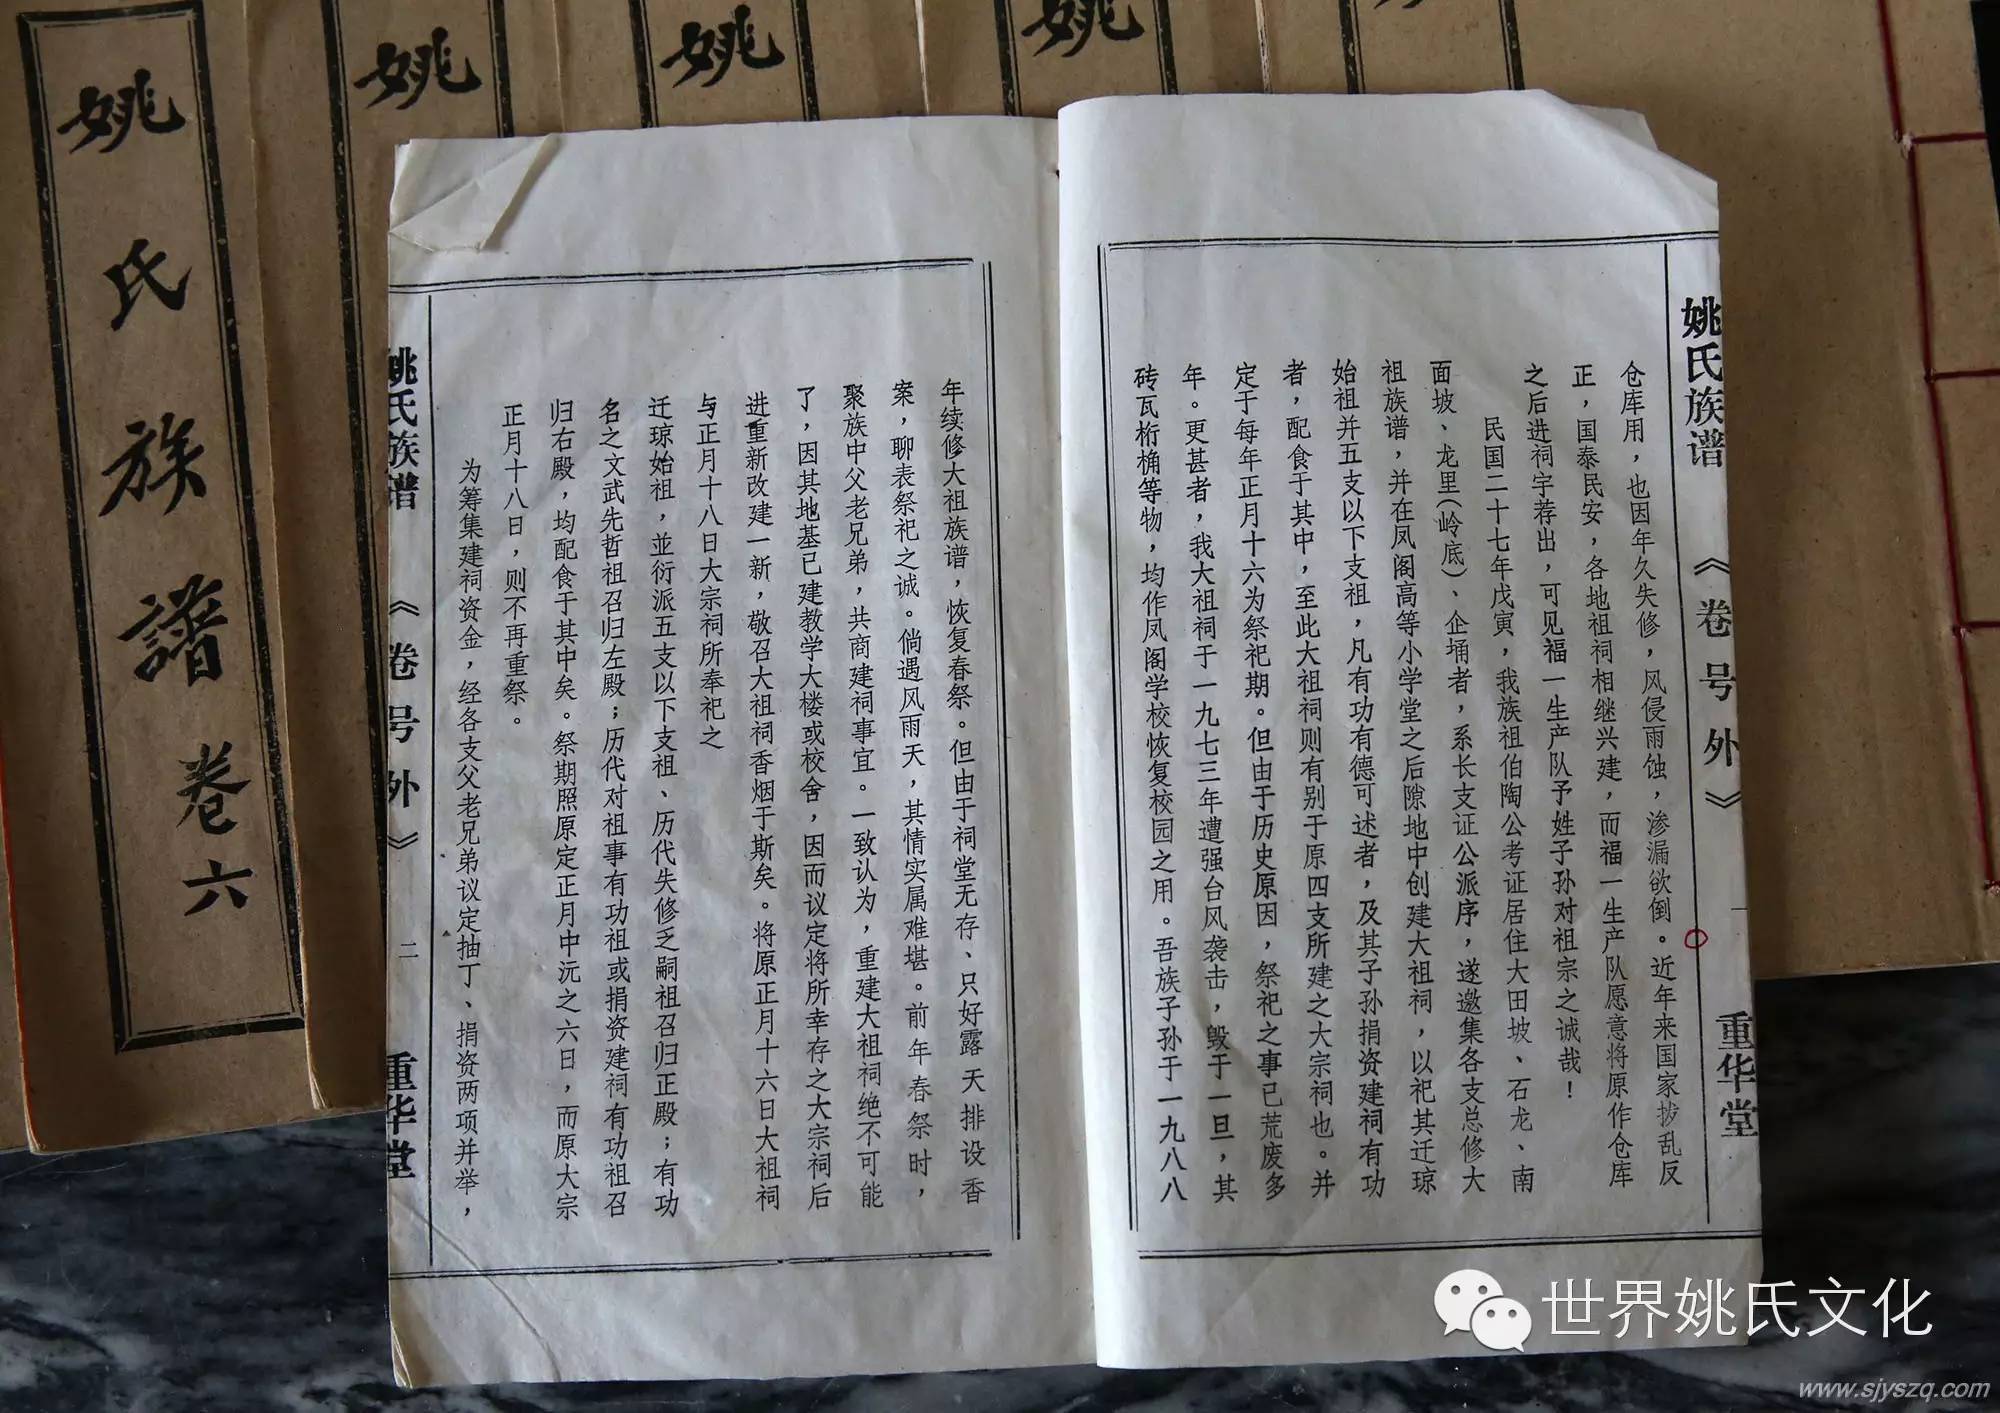 姚氏族譜卷六
姚
姚
姚
姚氏族谱 《卷号外》 一 重华堂
仓库用，也因年久失修，风侵雨蚀，渗漏欲倒。近年来国家拨乱反
正，国泰民安，各地祖祠相继兴建，而福一生产队愿意将原作仓库
之后进祠宇荐出，可见福一生产队予姓子孙对祖宗之诚哉！
民国二十七年戊寅，我族祖伯陶公考证居住大田坡、石龙、南
面坡、龙里（岭底）、企埇者，系长支证公派序，遂邀集各支总修大
祖族谱，并在凤阁高等小学堂之后隙地中创建大祖祠，以祀其迁琼
始祖并五支以下支祖，凡有功有德可述者，及其子孙捐资建祠有功
者，配食于其中，至此大祖祠则有别于原四支所建之大宗祠也。并
定于每年正月十六为祭祀期。但由于历史原因，祭祀之事已荒废多
年。更甚者，我大祖祠于一九七三年遭强台风袭击，毁于一旦，其
砖瓦桁桷等物，均作凤阁学校恢复校园之用。吾族子孙于一九八八
年续修大祖族谱，恢复春祭。但由于祠堂无存、只好露天排设香
案，聊表祭祀之诚。倘遇风雨天，其情实属难堪。前年春祭时，
聚族中父老兄弟，共商建祠事宜。一致认为，重建大祖祠绝不可能
了，因其地基已建教学大楼或校舍，因而议定将所幸存之大宗祠后
进重新改建一新，敬召大祖祠香烟于斯矣。将原正月十六日大祖祠
与正月十八日大宗祠所奉祀之
迁琼始祖，並衍派五支以下支祖、历代失修乏嗣祖召归正殿；有功
名之文武先哲祖召归左殿；历代对祖事有功祖或捐资建祠有功祖召
归右殿，均配食于其中矣。祭期照原定正月中沅之六日，而原大宗
正月十八日，则不再重祭。
为筹集建祠资金，经各支父老兄弟议定抽丁、捐资两项并举，
姚氏族谱 《卷号外》 二 重华堂
世界姚氏文化
www.sjyszq.com